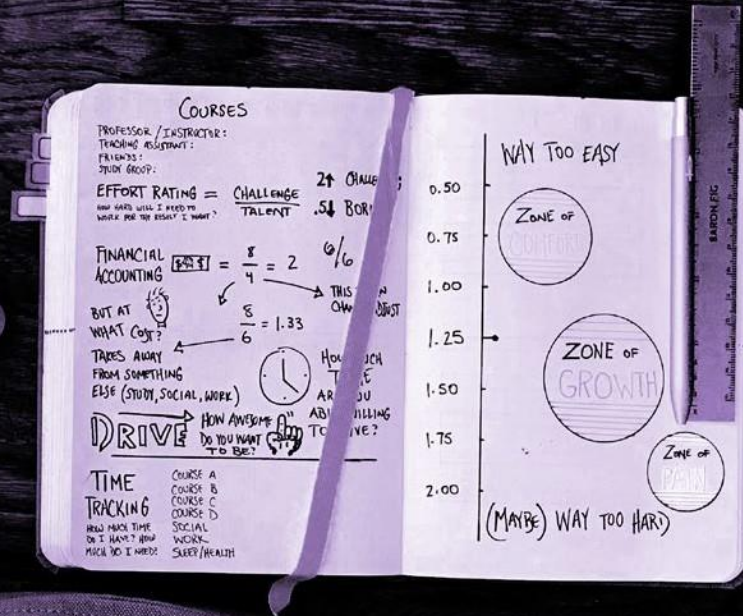 COURSES
PROFESSOR / INSTRUCTOR:
TEACHING ASSISTANT:
FRIENDS:
STUDY GROUP:
EFFORT RATING = CHALLENGE
TALENT
HOW HARD WILL I NEED TO
WORK FOR THE RESULT I WANT?
2↑
.5↓
FINANCIAL
ACCOUNTING
$$$ = 8/4 = 2
6/6
THIS
BUT AT
WHAT COST?
8/6 = 1.33
TAKES AWAY
FROM SOMETHING
ELSE (STUDY, SOCIAL, WORK)
DRIVE
HOW AWESOME
DO YOU WANT
TO BE?
TIME
TRACKING
HOW MUCH TIME
DO I HAVE? HOW
MUCH DO I NEED?
COURSE A
COURSE B
COURSE C
COURSE D
SOCIAL
WORK
SLEEP/HEALTH
WAY TOO EASY
0.50
0.75
1.00
1.25
1.50
1.75
2.00
ZONE OF
COMFORT
ZONE OF
GROWTH
ZONE OF
PAIN
(MAYBE) WAY TOO HARD
BARON FIG